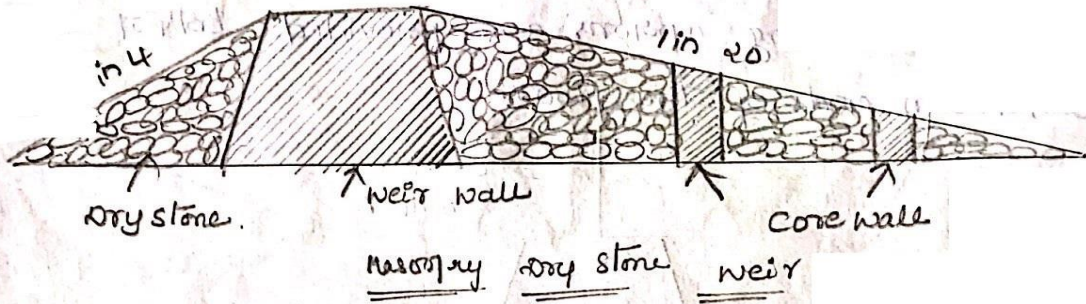 in 4
1 in 20
Dry stone.
weir wall
Core wall
Masonry Dry stone weir